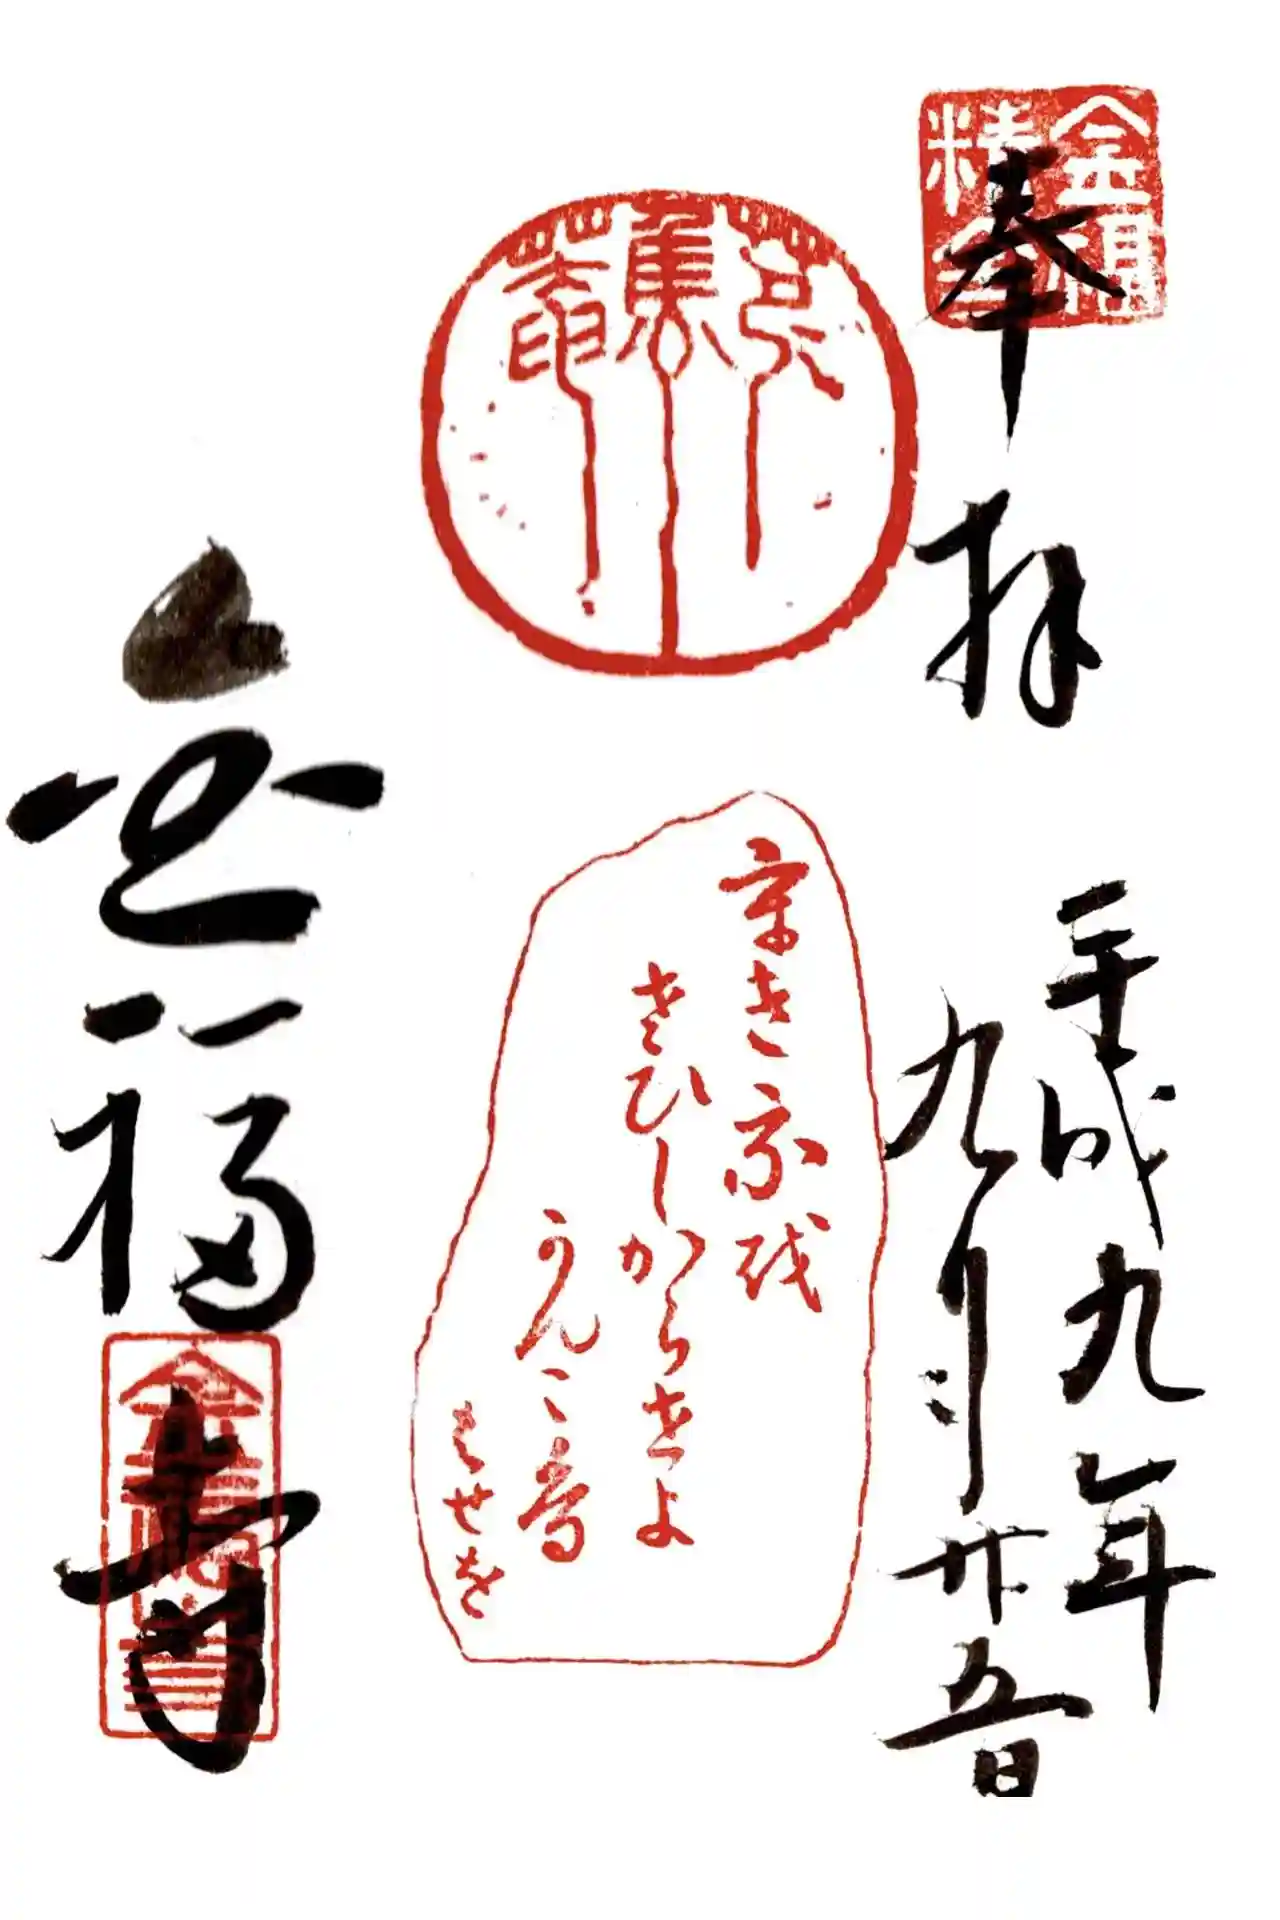 奉拝
金相
精舎
平成九年
九月廿五日
芭蕉菴
うき我を
さひしからせよ
かんこ鳥
はせを
金福寺
金福寺